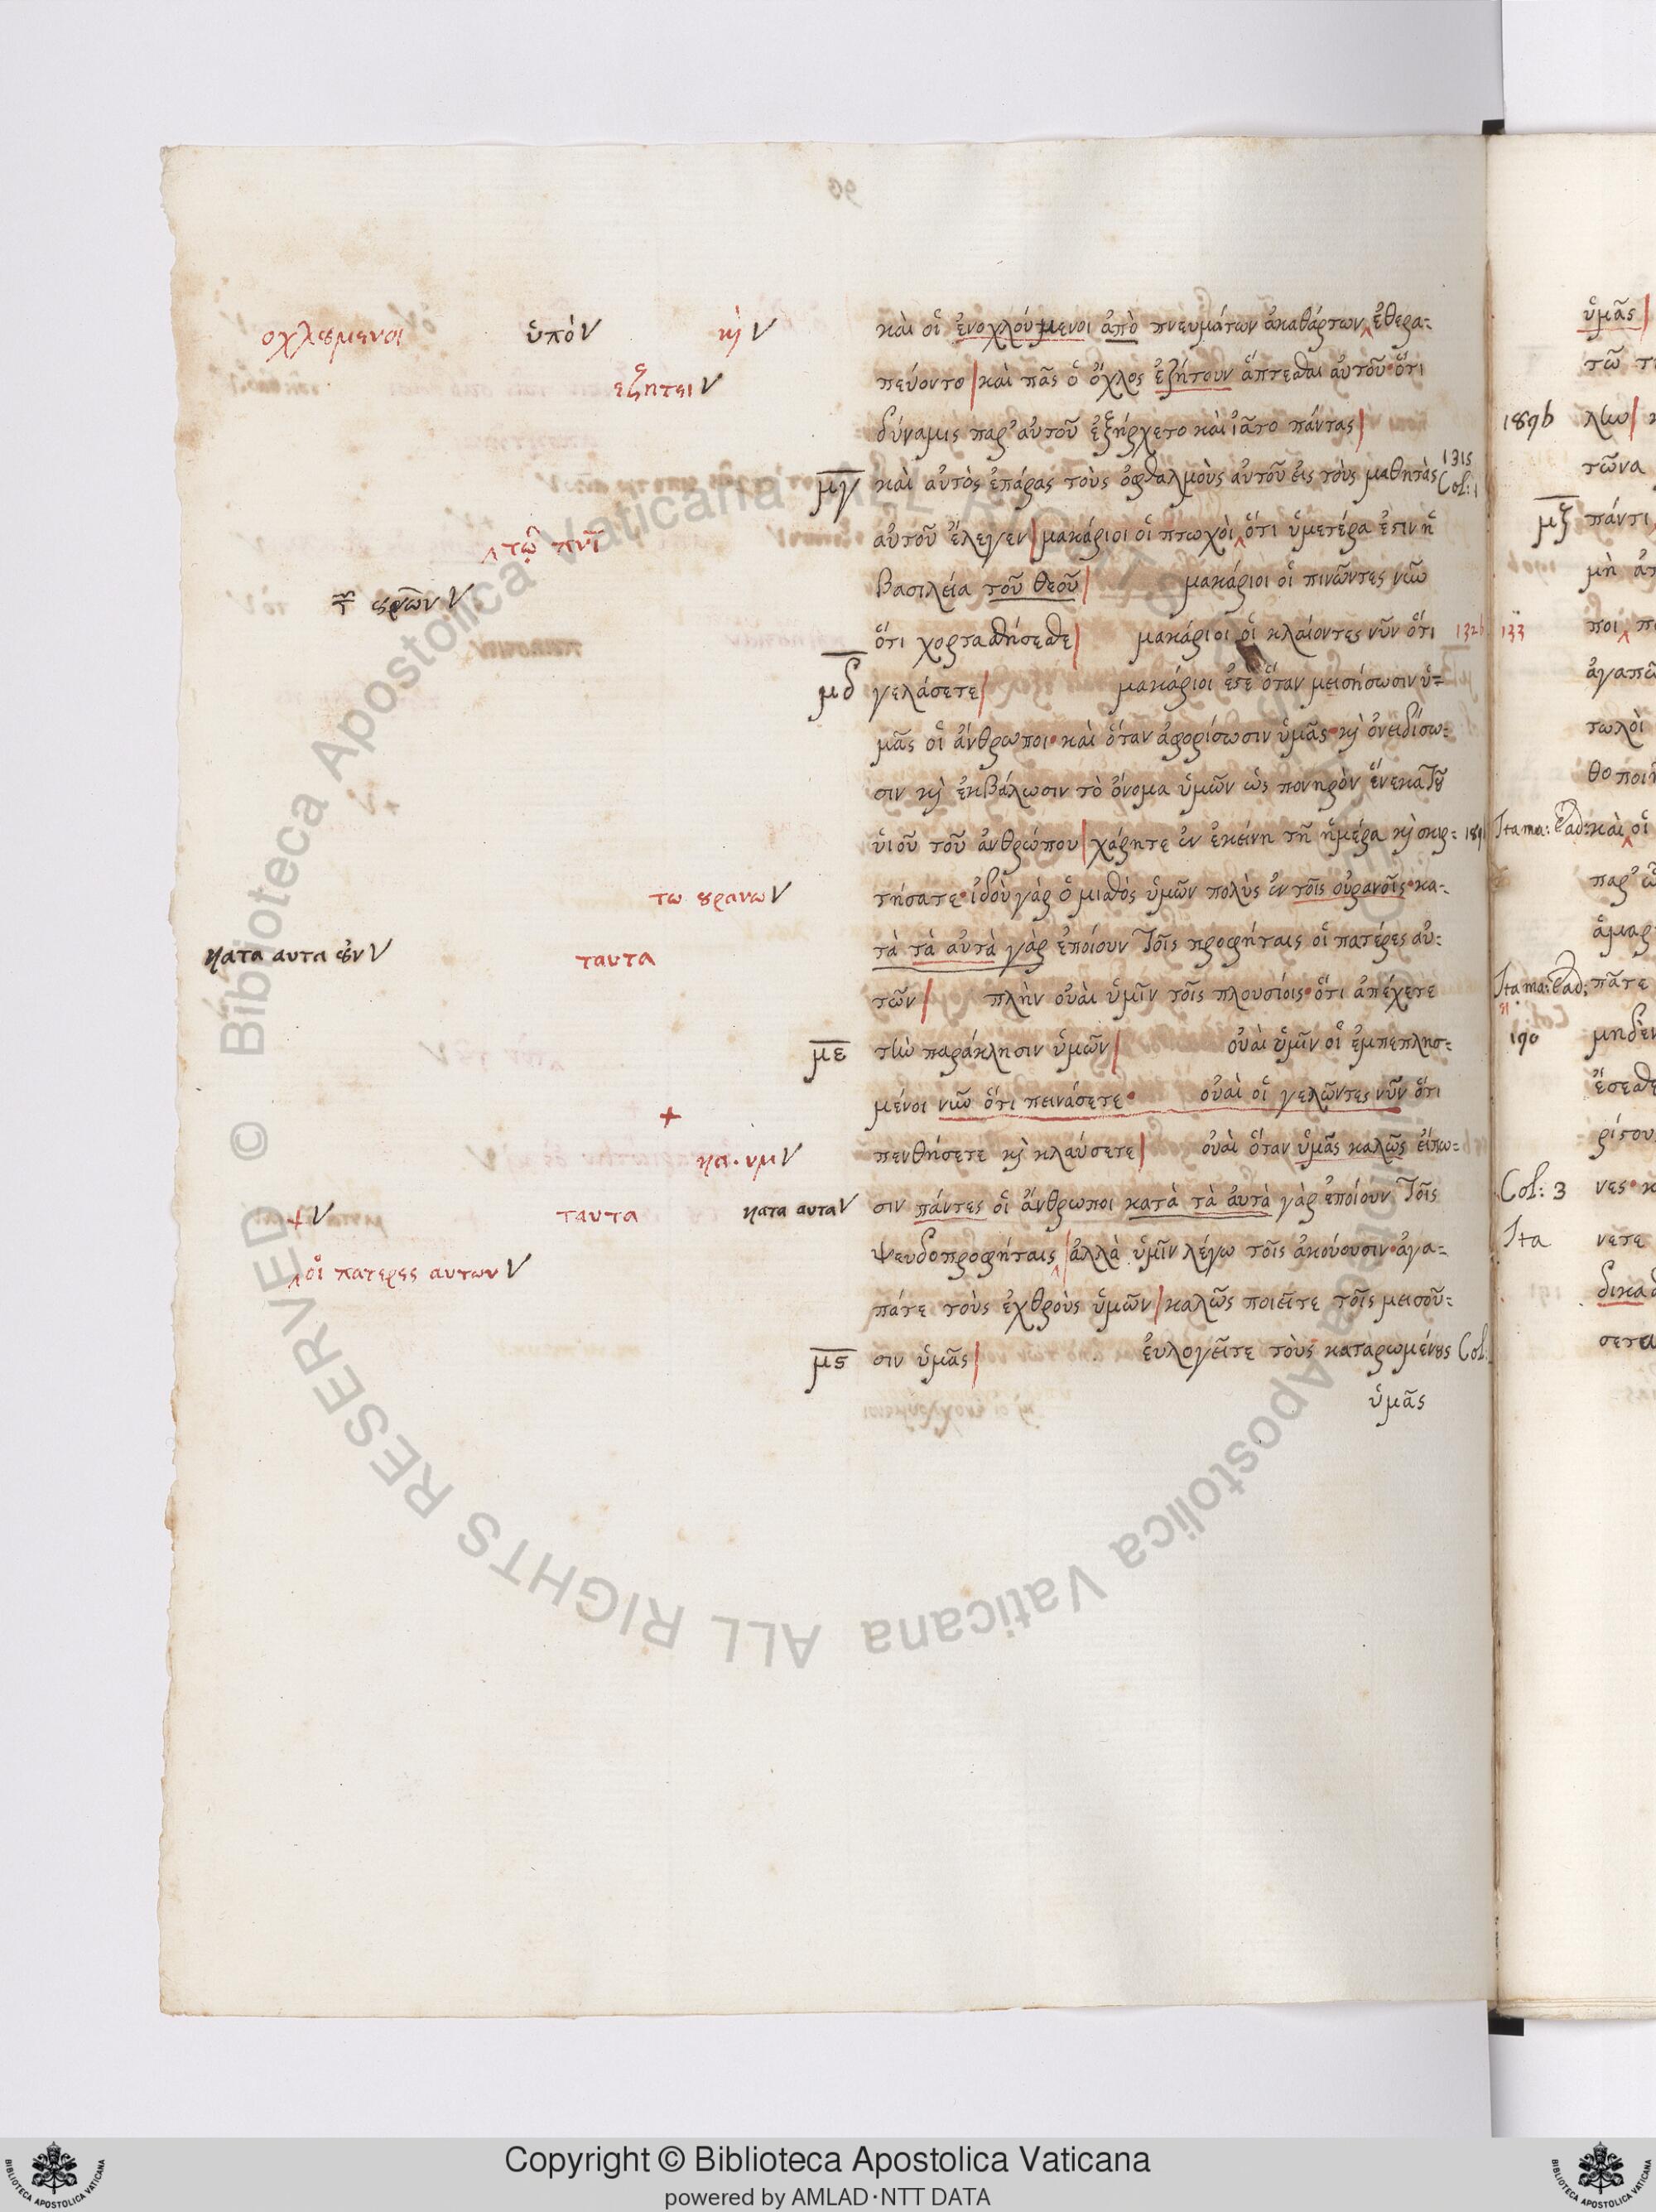 οχλȣμενοι ὑπὸ V κὶ V καὶ οἱ ἐνοχλούμενοι ἀπὸ πνευμάτων ἀκαθάρτων ἐθερα=
εζητει V πεύοντο | καὶ πᾶς ὁ ὄχλος ἐζήτουν ἅπτεσθαι αὐτοῦ· ὅτι
δύναμις παρ' αὐτοῦ ἐξήρχετο καὶ ἰᾶτο πάντας |
μγ καὶ αὐτὸς ἐπάρας τοὺς ὀφθαλμοὺς αὐτοῦ εἰς τοὺς μαθητὰς 1315 Col: 1
τῷ πνι αὐτοῦ ἔλεγεν | μακάριοι οἱ πτωχοὶ ὅτι ὑμετέρα ἐστιν ἡ
βασιλεία τοῦ θεοῦ | μακάριοι οἱ πινῶντες νῦν
ὅτι χορτασθήσεσθε | μακάριοι οἱ κλαίοντες νῦν ὅτι 132
μδ γελάσετε | μακάριοι ἐστὲ ὅταν μεισήσωσιν ὑ=
μᾶς οἱ ἄνθρωποι· καὶ ὅταν ἀφορίσωσιν ὑμᾶς· κὶ ὀνειδίσω=
σιν κὶ ἐκβάλωσιν τὸ ὄνομα ὑμῶν ὡς πονηρὸν ἕνεκα τȣ͂
υἱοῦ τοῦ ἀνθρώπου | χάρητε ἐν ἐκείνη τῆ ἡμέρα κὶ σκιρ=
τω ȣρανω V τήσατε· ἰδοὺ γάρ ὁ μισθὸς ὑμῶν πολὺς ἐν τοῖς οὐρανοῖς· κα=
κατα αυτα V ταυτα τὰ τὰ αὐτὰ γὰρ ἐποίουν τοῖς προφήταις οἱ πατέρες αὐ=
τῶν | πλὴν οὐαὶ ὑμῖν τοῖς πλουσίοις· ὅτι ἀπέχετε
με τὴν παράκλησιν ὑμῶν | οὐαὶ ὑμῖν οἱ ἐμπεπλησ=
+ μένοι νῦν ὅτι πεινάσετε· οὐαὶ οἱ γελῶντες νῦν ὅτι
κα· υμ V πενθήσετε κὶ κλαύσετε | οὐαὶ ὅταν ὑμᾶς καλῶς εἴπω=
+ V ταυτα κατα αυτα V σιν πάντες οἱ ἄνθρωποι κατὰ τὰ αὐτὰ γὰρ ἐποίουν τοῖς
οἱ πατερες αυτων V ψευδοπροφήταις | ἀλλὰ ὑμῖν λέγω τοῖς ἀκούουσιν· ἀγα=
πάτε τοὺς ἐχθροὺς ὑμῶν | καλῶς ποιεῖτε τοῖς μεισοῦ=
μς σιν ὑμᾶς | ἐυλογεῖτε τοὺς καταρωμένȣς Col:
ὑμᾶς
ὑμᾶς |
189b
μζ πάντι
133
Ita ma: καὶ οἱ
Ita ma: πᾶτε
190
Col: 3 νες·
Ita νετε
Copyright © Biblioteca Apostolica Vaticana
powered by AMLAD·NTT DATA
© Biblioteca Apostolica Vaticana ALL RIGHTS RESERVED
BIBLIOTECA APOSTOLICA VATICANA